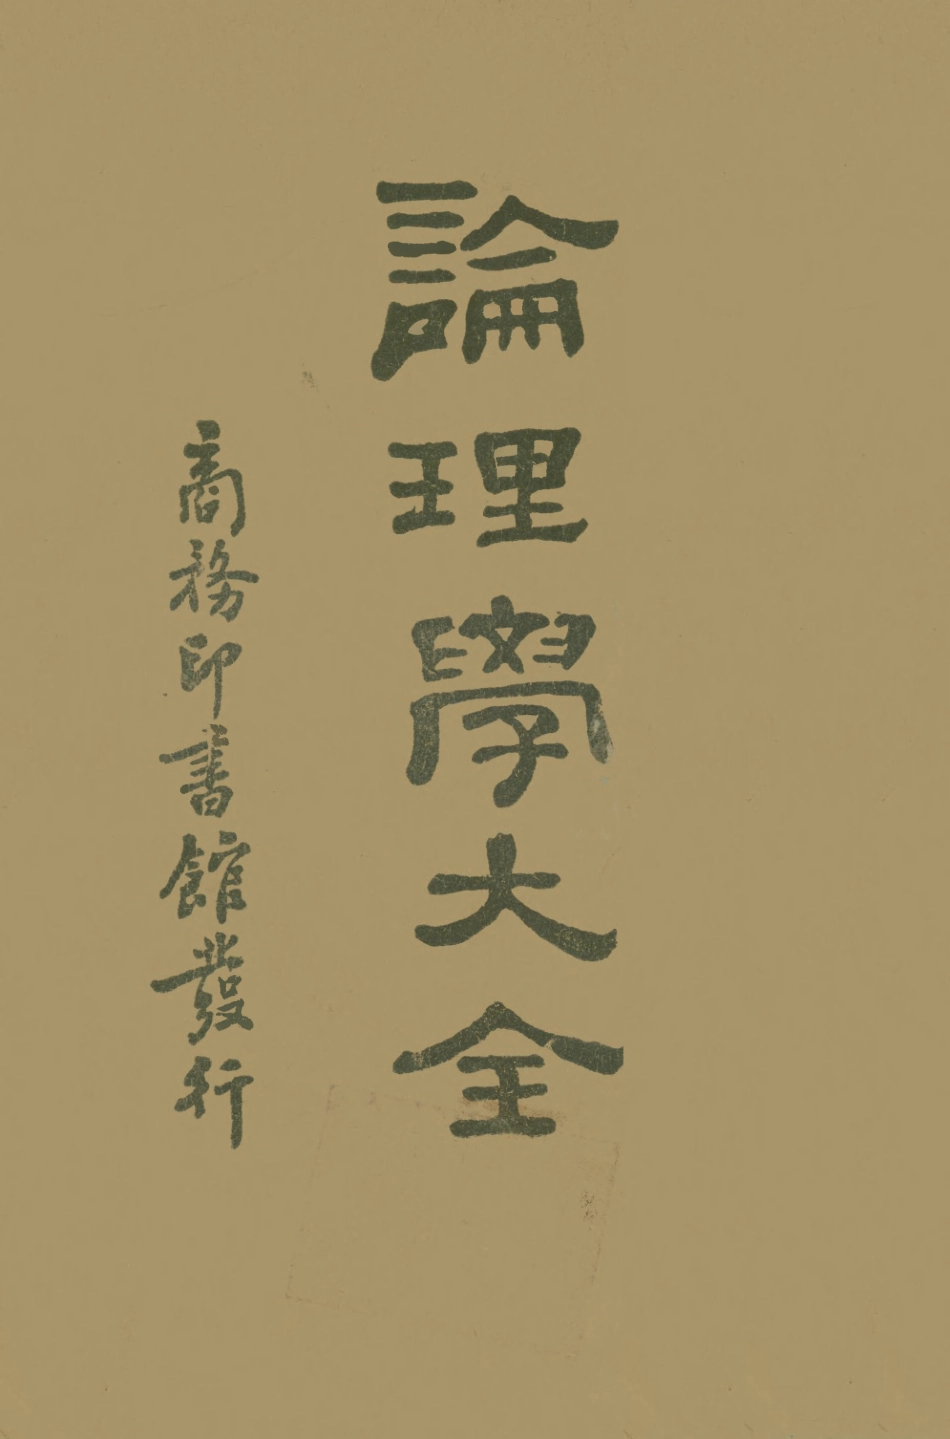 論理學大全
商務印書館發行